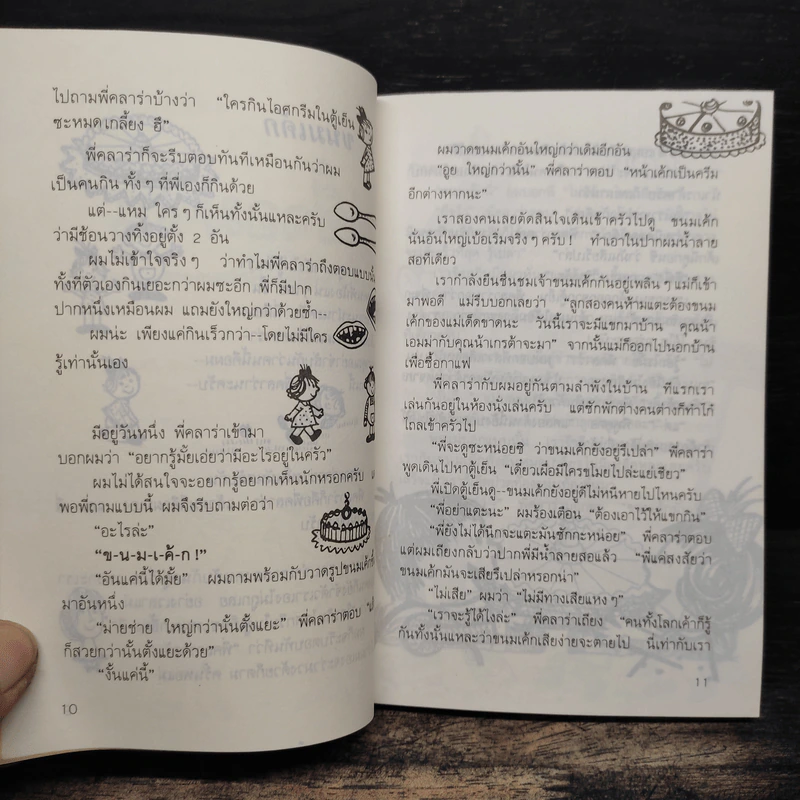 ไปถามพี่คลาร่าบ้างว่า "ใครกินไอศกรีมในตู้เย็น
ซะหมดเกลี้ยง ฮึ"
พี่คลาร่าก็จะรีบตอบทันทีเหมือนกันว่าผม
เป็นคนกิน ทั้ง ๆ ที่พี่เองก็กินด้วย
แต่--แหม ใคร ๆ ก็เห็นทั้งนั้นแหละครับ
ว่ามีช้อนวางทิ้งอยู่ตั้ง 2 อัน
ผมไม่เข้าใจจริง ๆ ว่าทำไมพี่คลาร่าถึงตอบแบบนั้น
ทั้งที่ตัวเองกินเยอะกว่าผมซะอีก พี่ก็มีปาก
ปากหนึ่งเหมือนผม แถมยังใหญ่กว่าด้วยซ้ำ--
ผมน่ะ เพียงแค่กินเร็วกว่า--โดยไม่มีใคร
รู้เท่านั้นเอง
มีอยู่วันหนึ่ง พี่คลาร่าเข้ามา
บอกผมว่า "อยากรู้มั้ยเอ่ยว่ามีอะไรอยู่ในครัว"
ผมไม่ได้สนใจจะอยากรู้อยากเห็นนักหรอกครับ
พอพี่ถามแบบนี้ ผมจึงรีบถามต่อว่า
"อะไรล่ะ"
"ข-น-ม-เ-ค้-ก !"
"อันแค่นี้ได้มั้ย" ผมถามพร้อมกับวาดรูปขนมเค้กขึ้น
มาอันหนึ่ง
"ม่ายช่าย ใหญ่กว่านั้นตั้งแยะ" พี่คลาร่าตอบ
ก็สวยกว่านั้นตั้งแยะด้วย"
"งั้นแค่นี้"
10
ผมวาดขนมเค้กอันใหญ่กว่าเดิมอีกอัน
"อูย ใหญ่กว่านั้น" พี่คลาร่าตอบ "หน้าเค้กเป็นครีม
อีกต่างหากนะ"
เราสองคนเลยตัดสินใจเดินเข้าครัวไปดู ขนมเค้ก
นั่นอันใหญ่เบ้อเริ่มจริง ๆ ครับ ! ทำเอาในปากผมน้ำลาย
สอทีเดียว
เรากำลังยืนชื่นชมเจ้าขนมเค้กกันอยู่เพลิน ๆ แม่ก็เข้า
มาพอดี แม่รีบบอกเลยว่า "ลูกสองคนห้ามแตะต้องขนม
เค้กของแม่เด็ดขาดนะ วันนี้เราจะมีแขกมาบ้าน คุณน้า
เอมม่ากับคุณน้าเกรต้าจะมา" จากนั้นแม่ก็ออกไปนอกบ้าน
เพื่อซื้อกาแฟ
พี่คลาร่ากับผมอยู่กันตามลำพังในบ้าน ทีแรกเรา
เล่นกันอยู่ในห้องนั่งเล่นครับ แต่ซักพักต่างคนต่างก็ทำโก๋
ไถลเข้าครัวไป
"พี่จะดูซะหน่อยซิ ว่าขนมเค้กยังอยู่รึเปล่า" พี่คลาร่า
พูดเดินไปหาตู้เย็น "เดี๋ยวเผื่อมีใครขโมยไปล่ะแย่เชียว"
พี่เปิดตู้เย็นดู--ขนมเค้กยังอยู่ดีไม่หนีหายไปไหนครับ
"พี่อย่าแตะนะ" ผมร้องเตือน "ต้องเอาไว้ให้แขกกิน"
"พี่ยังไม่ได้นึกจะแตะมันซักกะหน่อย" พี่คลาร่าตอบ
แต่ผมเถียงกลับว่าปากพี่มีน้ำลายสอแล้ว "พี่แค่สงสัยว่า
ขนมเค้กมันจะเสียรึเปล่าหรอกน่า"
"ไม่เสีย" ผมว่า "ไม่มีทางเสียแหง ๆ"
"เราจะรู้ได้ไงล่ะ" พี่คลาร่าเถียง "คนทั้งโลกเค้าก็รู้
กันทั้งนั้นแหละว่าขนมเค้กเสียง่ายจะตายไป นี่เท่ากับเรา
11